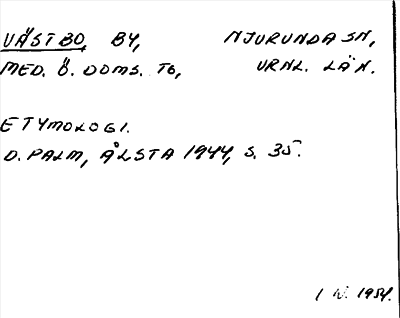 VÄSTBO, BY, NJURUNDA SN,
MED. Ö. DOMS. TG, VRNL. LÄN.
ETYMOLOGI.
D. PALM, ÅLSTA 1944, S. 35.
1954.